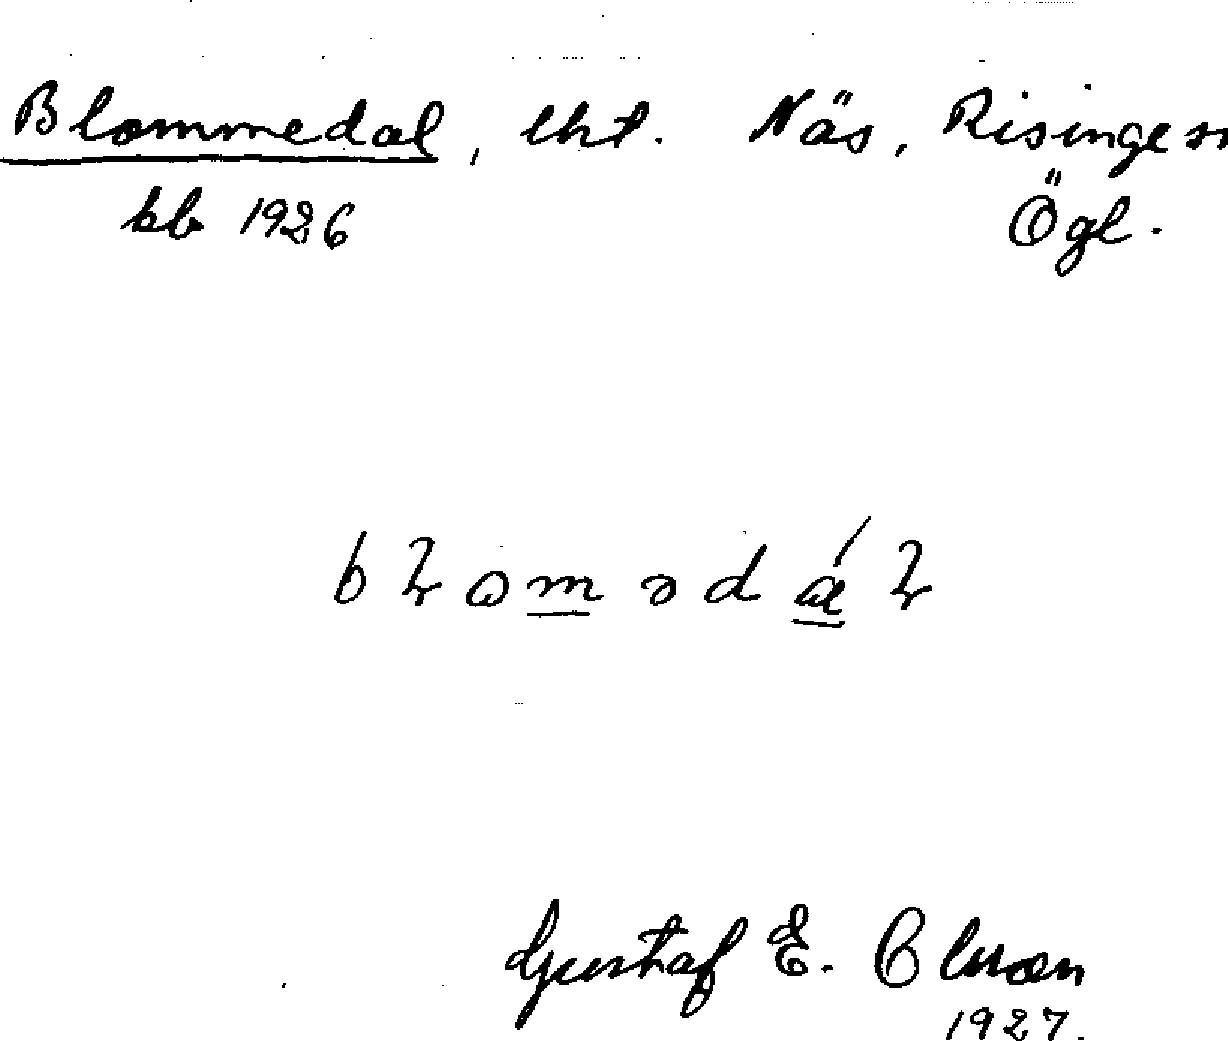 Blommedal, lht. Näs, Risinge sn
kb 1926 Ögl.
bɫɷmədáɫ
Gustaf E. Olsson
1927.